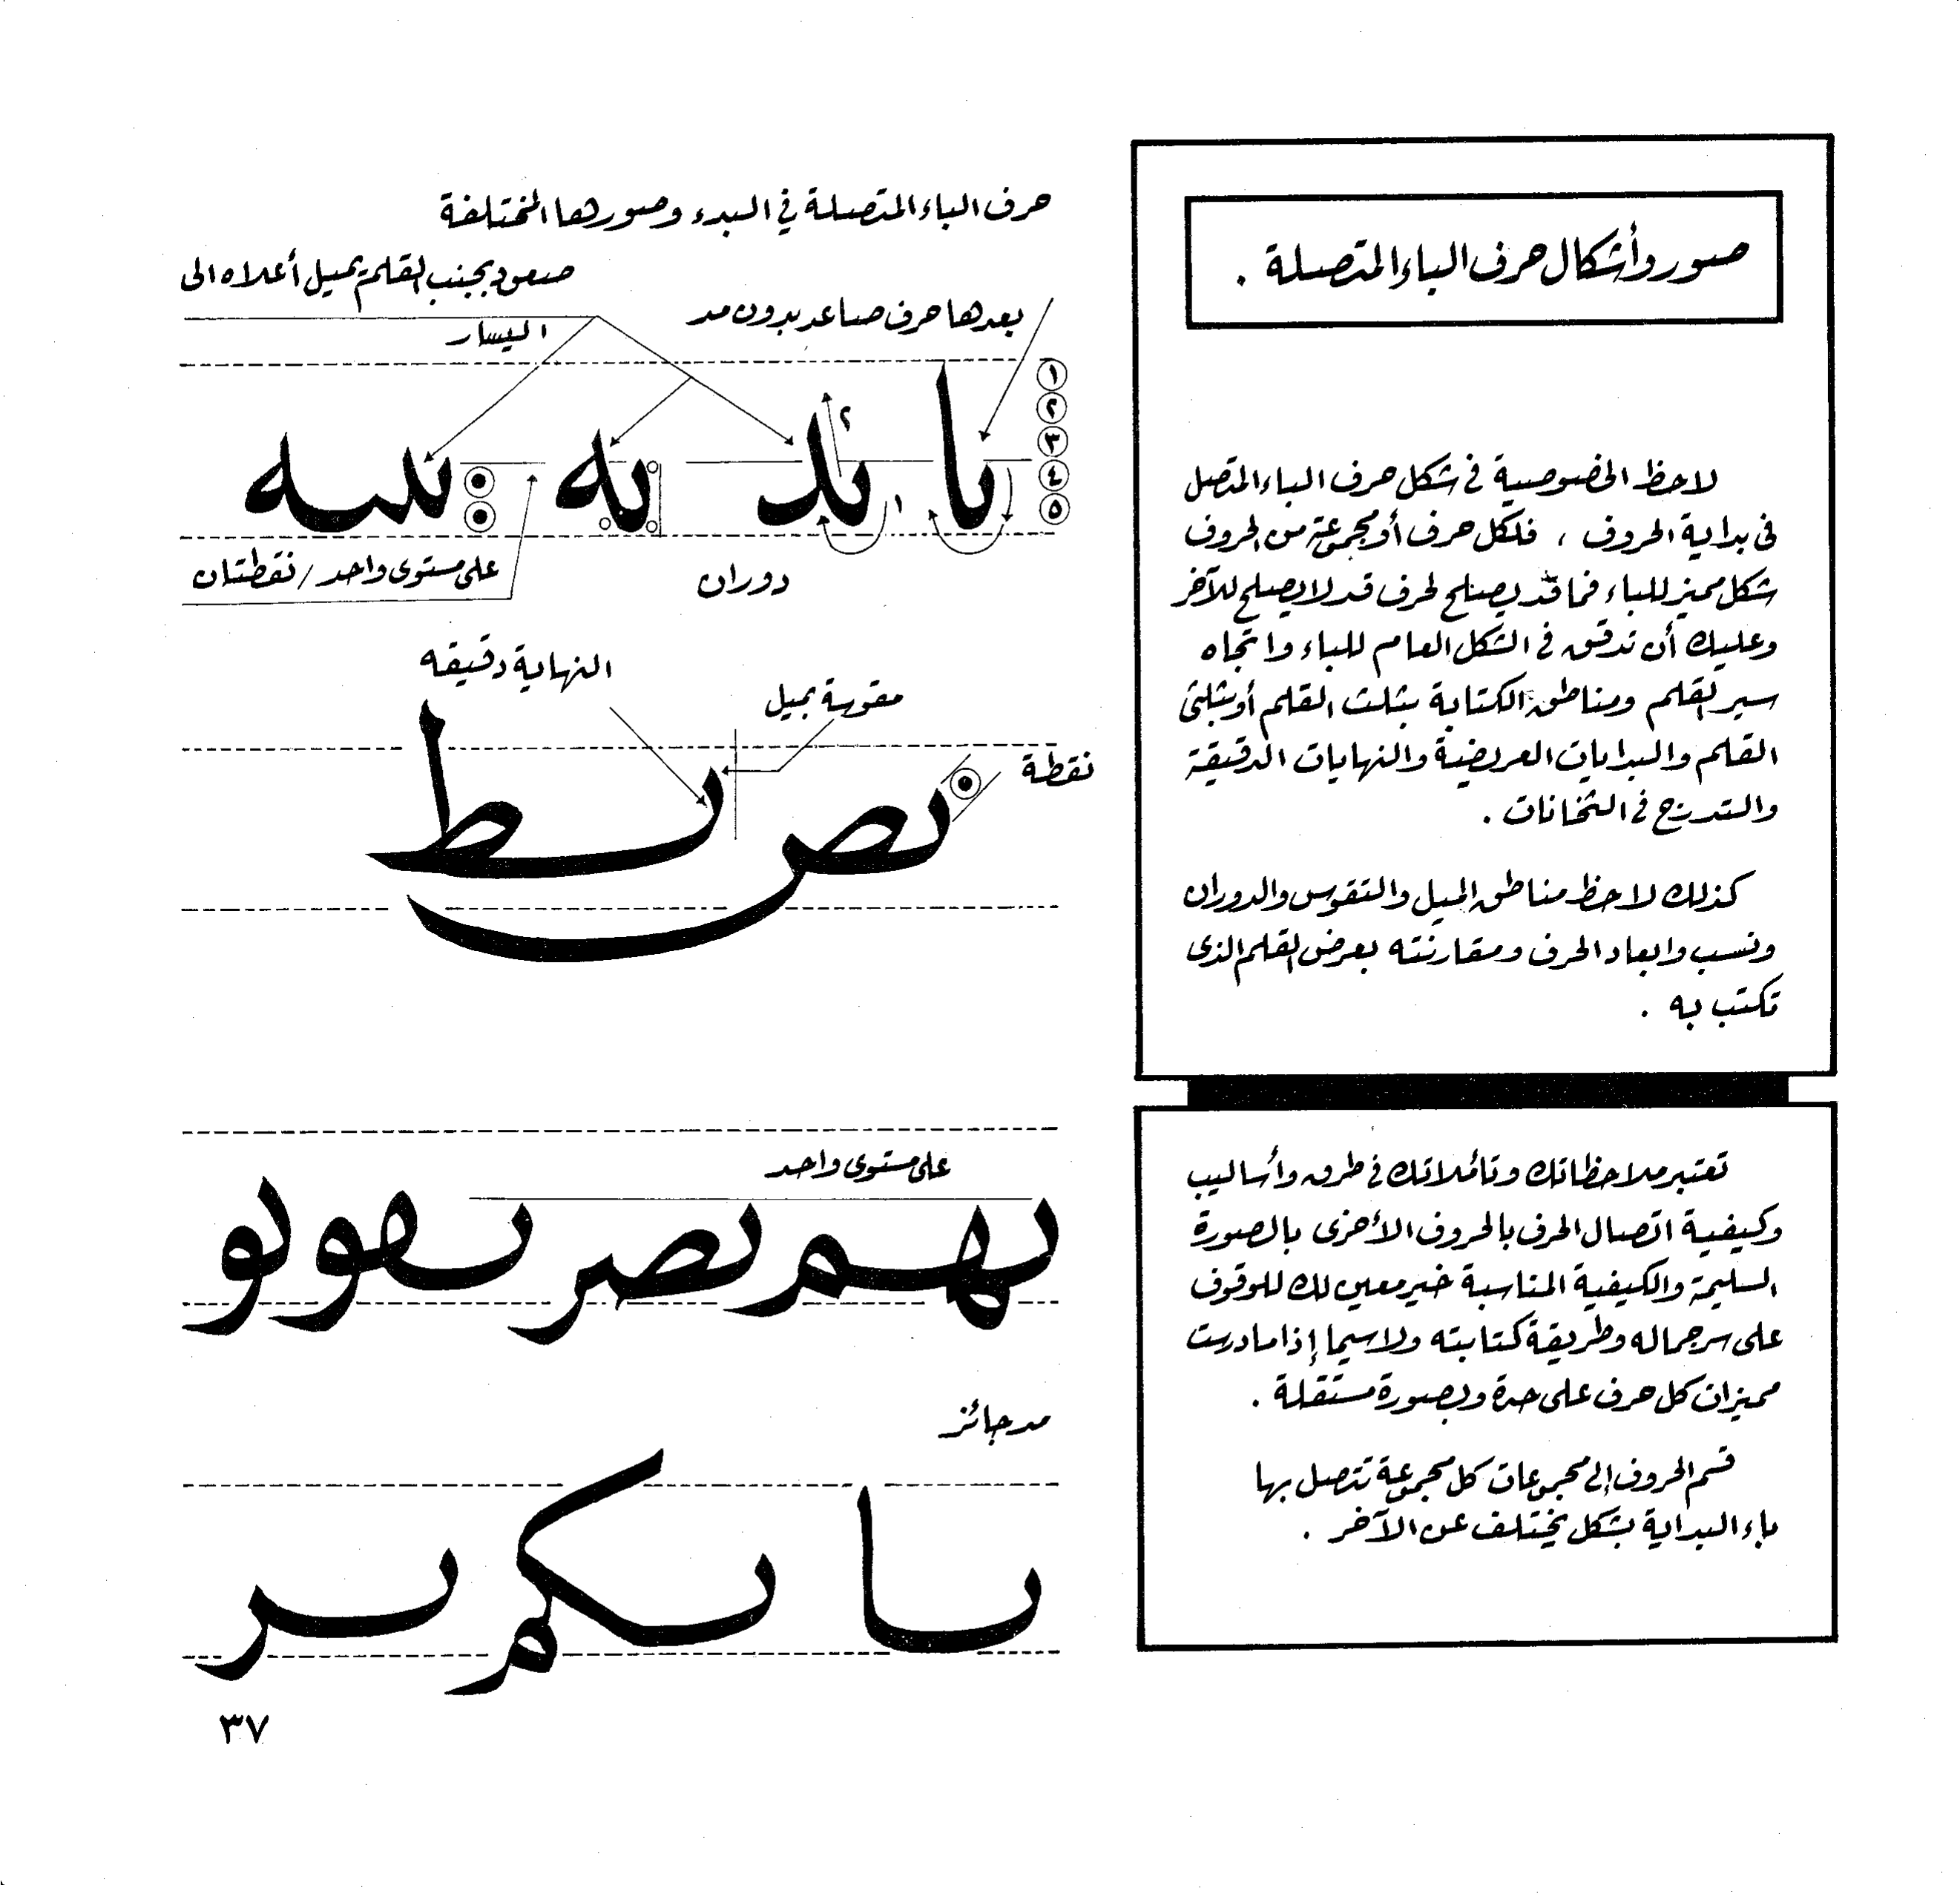 صور وأشكال حرف الباء المتصلة .
لاحظ الخصوصية في شكل حرف الباء المتصل
فى بداية الحروف ، فلكل حرف أو مجموعة من الحروف
شكل مميز للباء فما قد يصلح لحرف قد لا يصلح للآخر
وعليك أن تدقق فى الشكل العام للباء واتجاه
سير القلم ومناطق الكتابة بثلث القلم أو بثلثى
القلم والبدايات العريضة والنهايات الدقيقة
والتدرج فى الثخانات .
كذلك لاحظ مناطق الميل والتقوس والدوران
ونسب وابعاد الحرف ومقارنته بعرض القلم الذى
تكتب به .
تعتبر ملاحظاتك وتأملاتك فى طرق وأساليب
وكيفية اتصال الحرف بالحروف الأخرى بالصورة
السليمة والكيفية المناسبة خير معين لك للوقوف
على سر جماله وطريقة كتابته ولاسيما إذا ما درست
مميزات كل حرف على حدة وبصورة مستقلة .
قسم الحروف إلى مجموعات كل مجموعة تتصل بها
باء البداية بشكل يختلف عن الآخر .
حرف الباء المتصلة في البدء وصورها المختلفة
صعود بجنب القلم يميل أعلاه الى
اليسار
بعدها حرف صاعد بدون مد
١
٢
٣
٤
٥
٢
١
على مستوى واحد / نقطتان
دوران
النهاية دقيقه
مقوسة بميل
نقطة
على مستوى واحد
مد جائز
٣٧